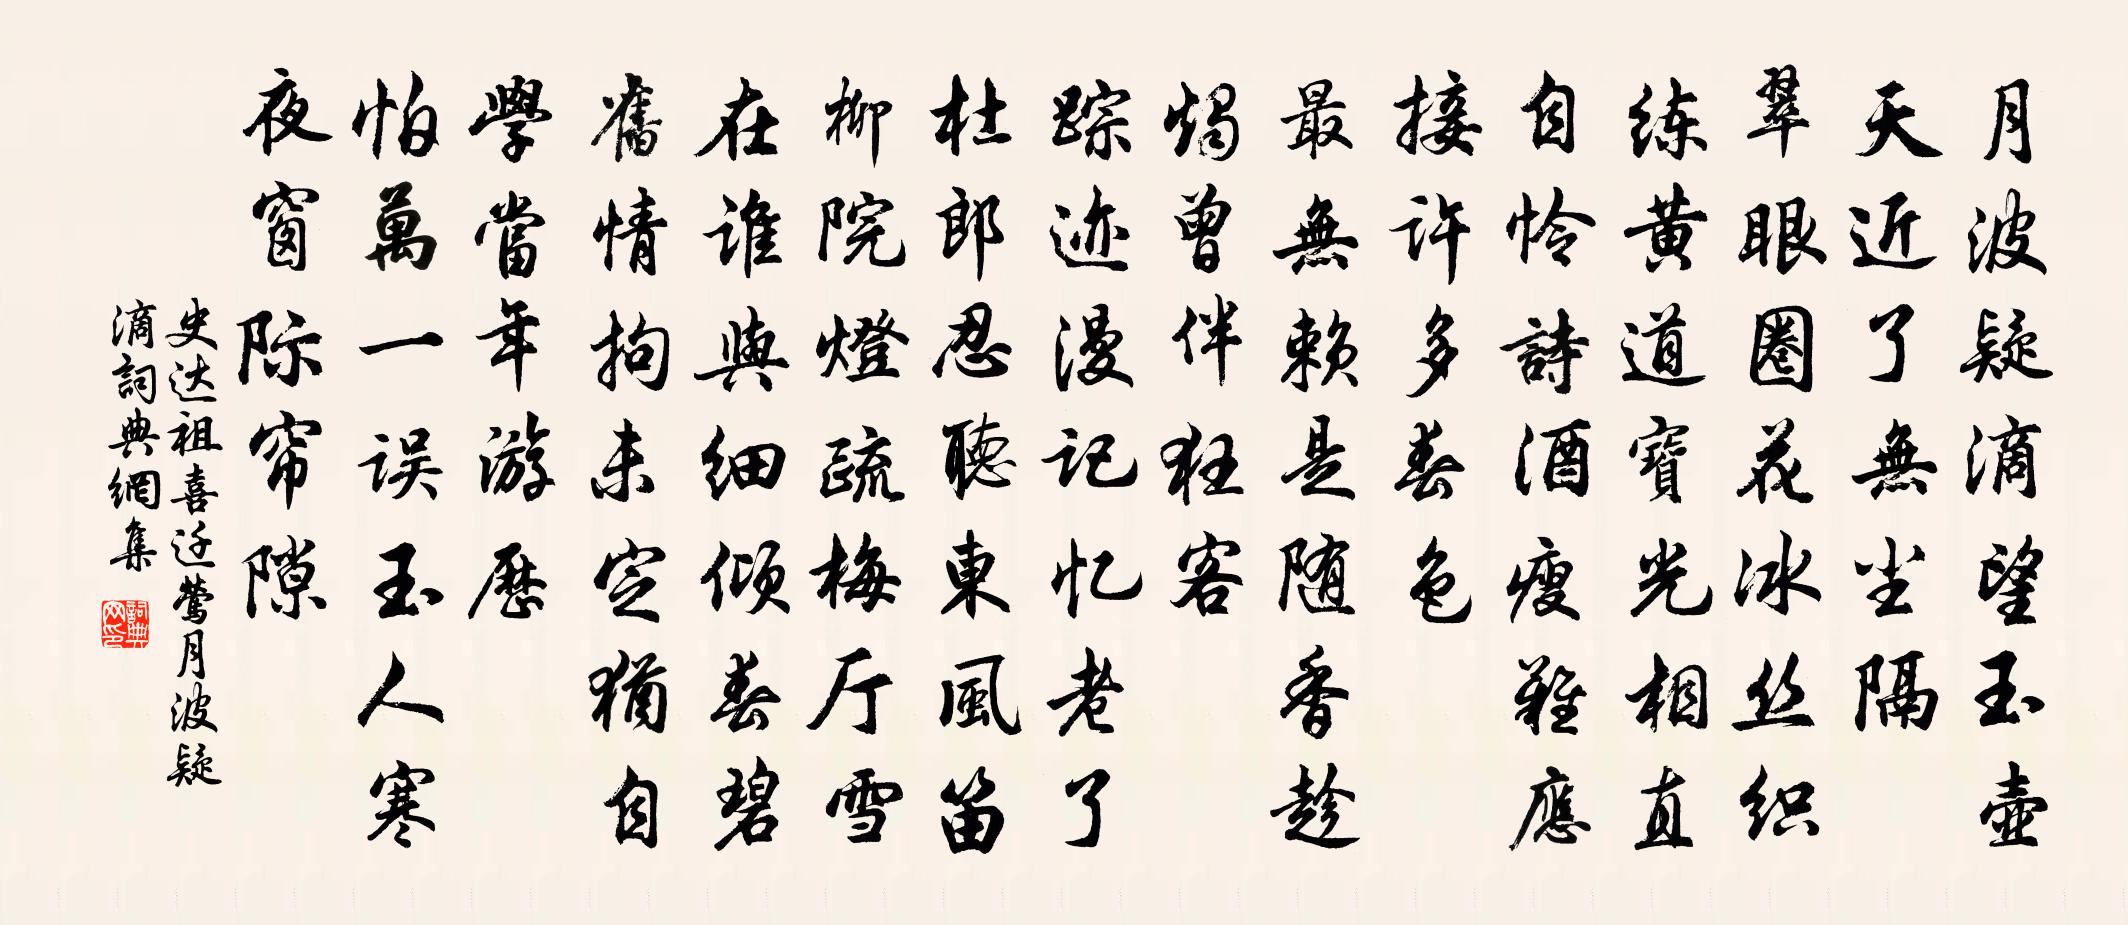 月波疑滴望玉壶
天近了無尘隔
翠眼圈花冰丝织
练黄道寶光相直
自怜詩酒瘦难應
接许多春色
最無赖是随香趁
烛曾伴狂客
踪迹漫记忆老了
杜郎忍聽東風笛
柳院燈疏梅厅雪
在谁與细倾春碧
舊情拘未定猶自
學當年游歷
怕萬一误玉人寒
夜窗际帘隙
史达祖喜迁莺月波疑
滴詞典網集
詞典
网印